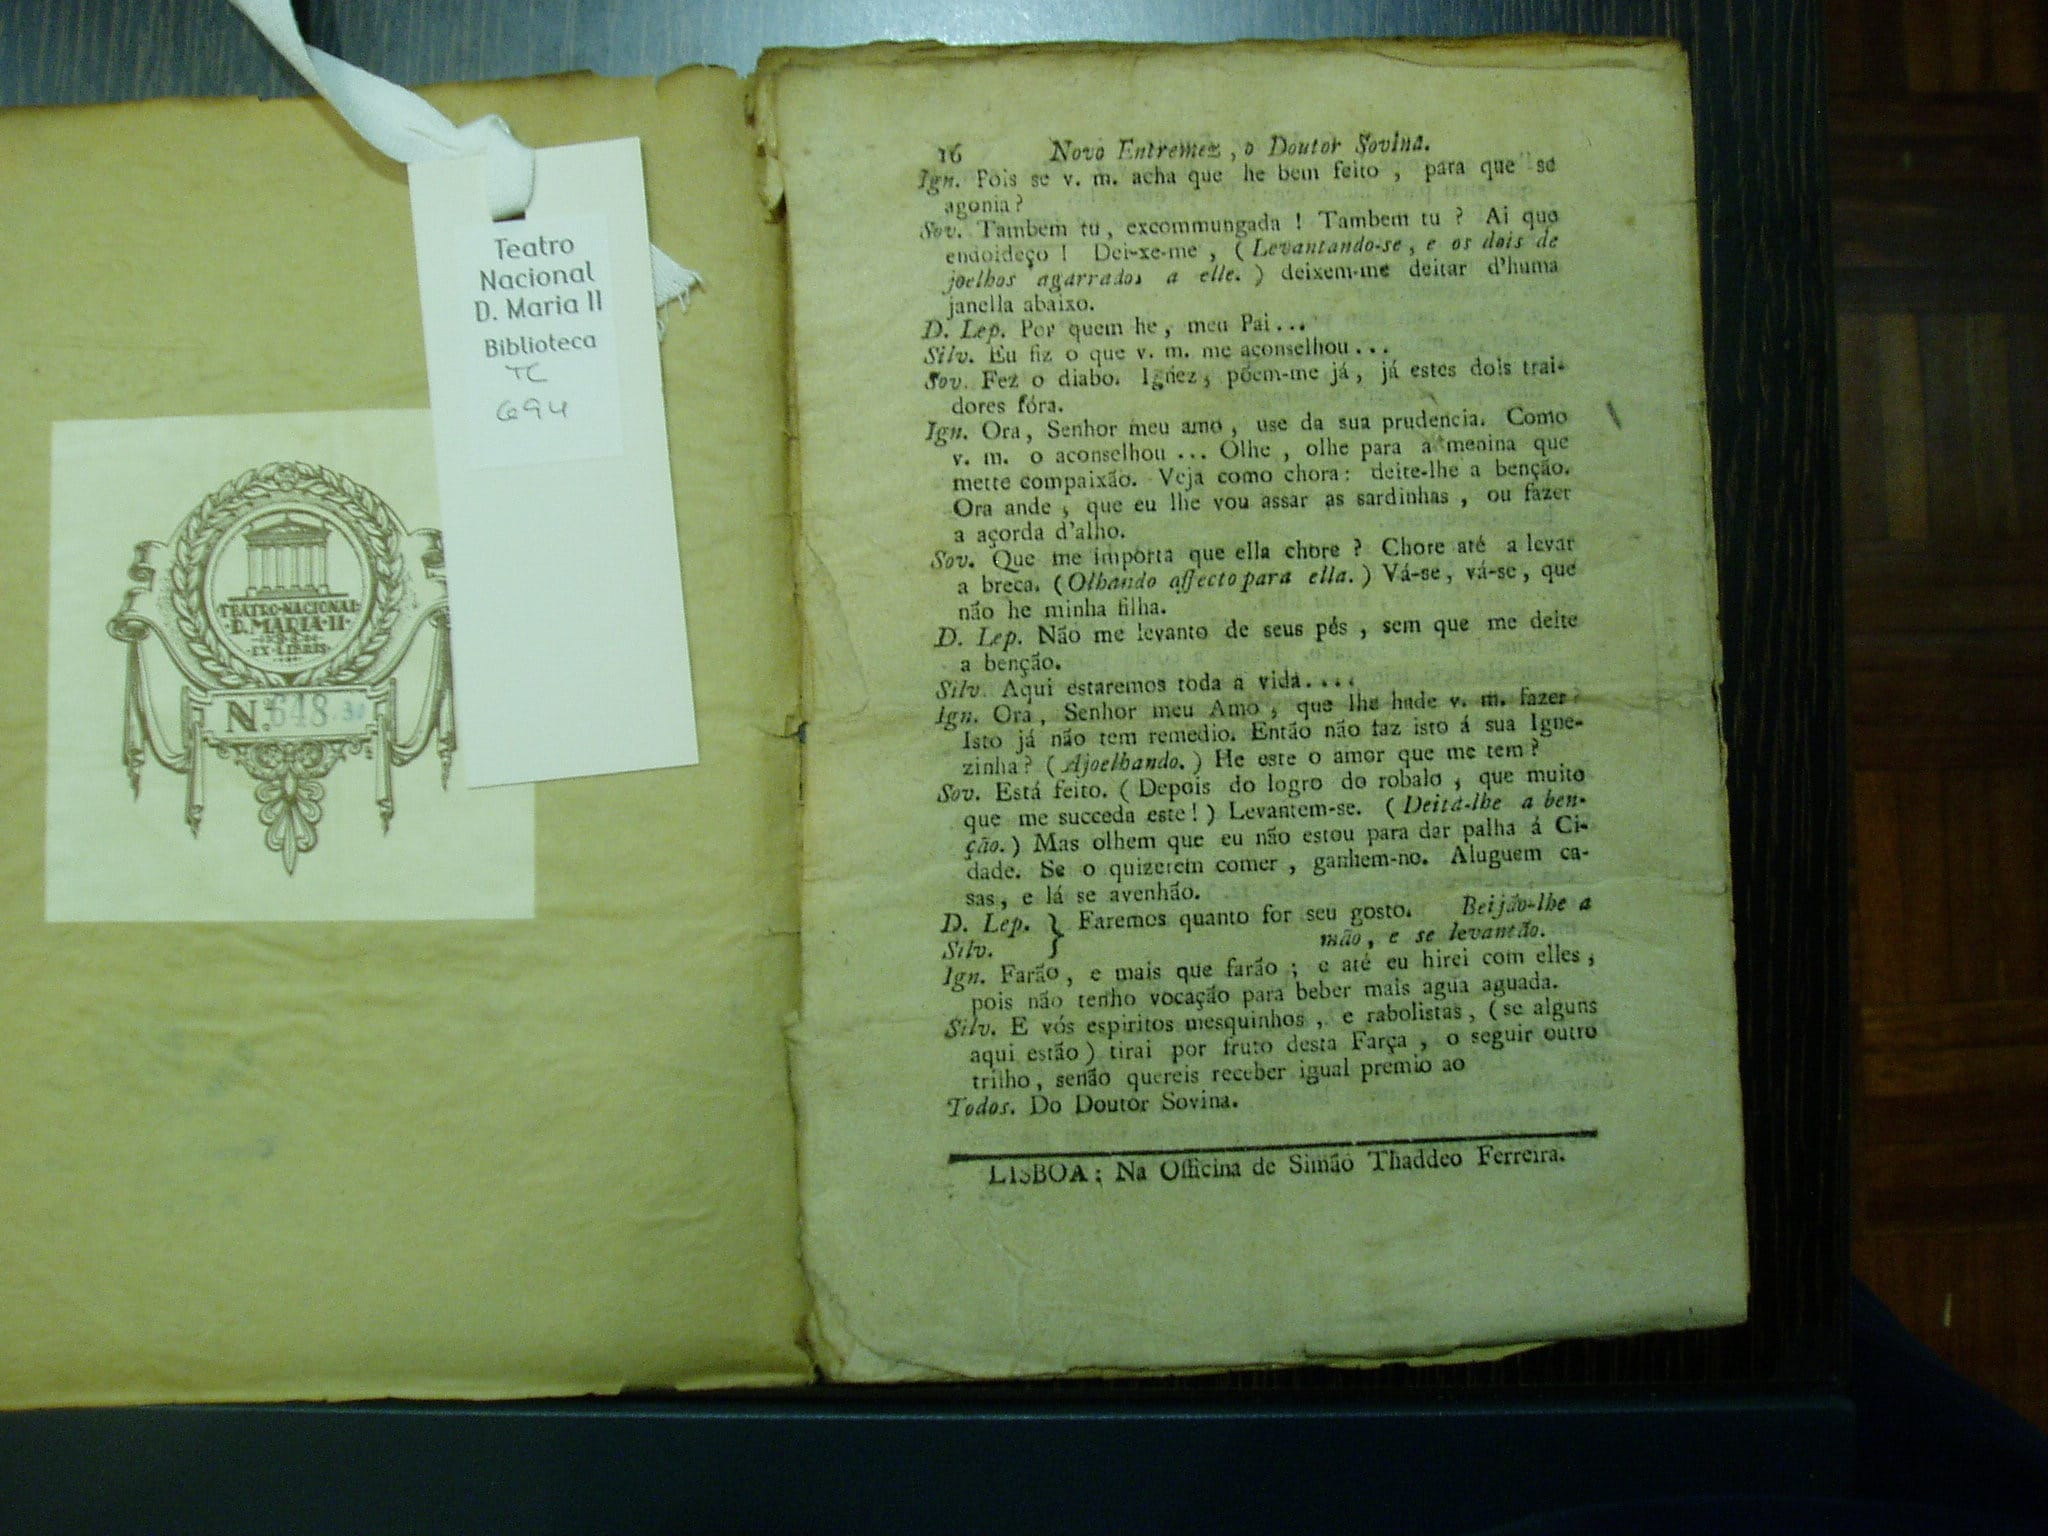 Teatro
Nacional
D. Maria II
Biblioteca
TC
694
TEATRO·NACIONAL
·D. MARIA·II·
·EX-LIBRIS·
N.º 648
16 Novo Entremez, o Doutor Sovina.
Ign. Pois se v. m. acha que he bem feito, para que se
agonia?
Sov. Tambem tu, excommungada! Tambem tu? Ai que
endoideço! Dei-xe-me, (Levantando-se, e os dois de
joelhos agarrados a elle.) deixem-me deitar d'huma
janella abaixo.
D. Lep. Por quem he, meu Pai...
Silv. Eu fiz o que v. m. me aconselhou...
Sov. Fez o diabo. Ignez, põem-me já, já estes dois trai-
dores fóra.
Ign. Ora, Senhor meu amo, use da sua prudencia. Como
v. m. o aconselhou... Olhe, olhe para a menina que
mette compaixão. Veja como chora: deite-lhe a benção.
Ora ande, que eu lhe vou assar as sardinhas, ou fazer
a açorda d'alho.
Sov. Que me importa que ella chore? Chore até a levar
a breca. (Olhando affecto para ella.) Vá-se, vá-se, que
não he minha filha.
D. Lep. Não me levanto de seus pés, sem que me deite
a benção.
Silv. Aqui estaremos toda a vida....
Ign. Ora, Senhor meu Amo, que lhe hade v. m. fazer?
Isto já não tem remedio. Então não faz isto á sua Igne-
zinha? (Ajoelhando.) He este o amor que me tem?
Sov. Está feito. (Depois do logro do robalo, que muito
que me succeda este!) Levantem-se. (Deita-lhe a ben-
ção.) Mas olhem que eu não estou para dar palha á Ci-
dade. Se o quizerem comer, ganhem-no. Aluguem ca-
sas, e lá se avenhão.
D. Lep. } Faremos quanto for seu gosto. Beijão-lhe a
Silv. mão, e se levantão.
Ign. Farão, e mais que farão; e até eu hirei com elles,
pois não tenho vocação para beber mais agua aguada.
Silv. E vós espiritos mesquinhos, e rabolistas, (se alguns
aqui estão) tirai por fruto desta Farça, o seguir outro
trilho, senão quereis receber igual premio ao
Todos. Do Doutor Sovina.
LISBOA: Na Officina de Simão Thaddeo Ferreira.